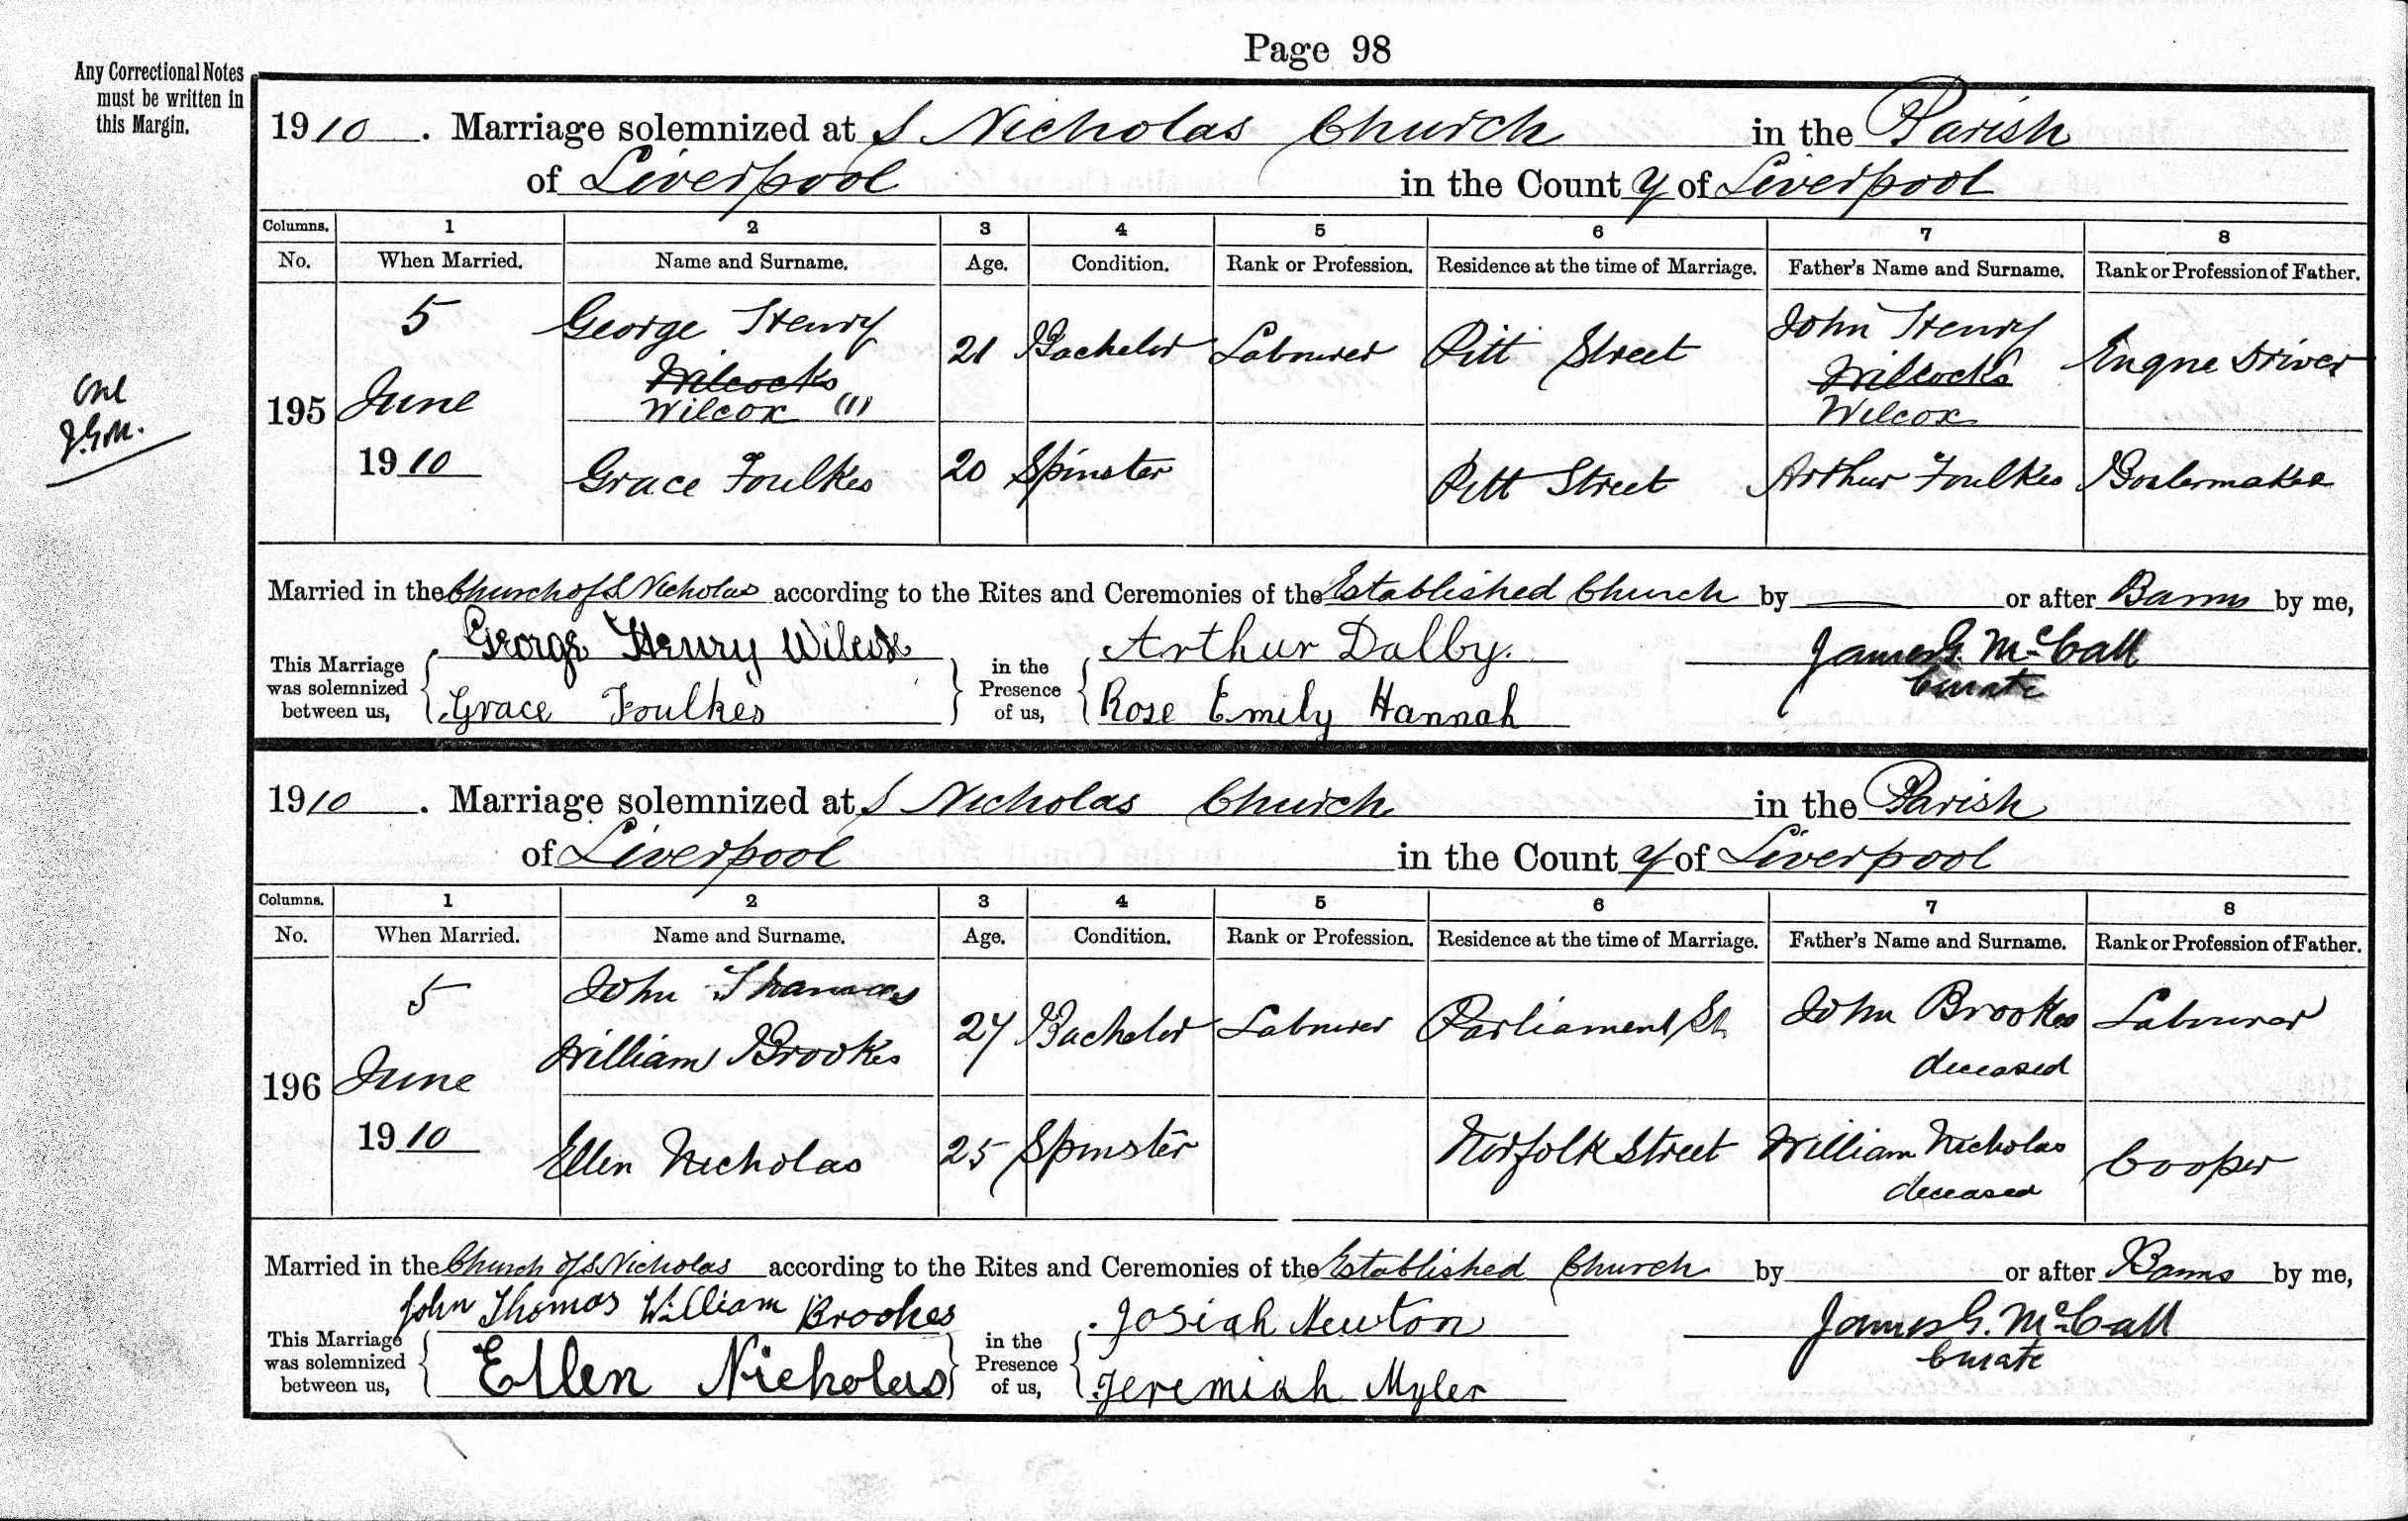 Page 98
Any Correctional Notes
must be written in
this Margin.
1910 . Marriage solemnized at S Nicholas Church in the Parish
of Liverpool in the County of Liverpool
Columns. 1 2 3 4 5 6 7 8
No. When Married. Name and Surname. Age. Condition. Rank or Profession. Residence at the time of Marriage. Father's Name and Surname. Rank or Profession of Father.
195 5 June 1910
George Henry Wilcocks Wilcox (1) 21 Bachelor Labourer Pitt Street John Henry Wilcocks Wilcox Engne Driver
Grace Foulkes 20 Spinster Pitt Street Arthur Foulkes Boilermaker
one
J.G.M.
Married in the Church of S Nicholas according to the Rites and Ceremonies of the Established Church by or after Banns by me,
This Marriage was solemnized between us, George Henry Wilcox Grace Foulkes in the Presence of us, Arthur Dalby. Rose Emily Hannah James G. McCall Curate
1910 . Marriage solemnized at S Nicholas Church in the Parish
of Liverpool in the County of Liverpool
Columns. 1 2 3 4 5 6 7 8
No. When Married. Name and Surname. Age. Condition. Rank or Profession. Residence at the time of Marriage. Father's Name and Surname. Rank or Profession of Father.
196 5 June 1910
John Thomas William Brookes 27 Bachelor Labourer Parliament St. John Brookes deceased Labourer
Ellen Nicholas 25 Spinster Norfolk Street William Nicholas deceased Cooper
Married in the Church of S Nicholas according to the Rites and Ceremonies of the Established Church by or after Banns by me,
This Marriage was solemnized between us, John Thomas William Brookes Ellen Nicholas in the Presence of us, Josiah Newton Jeremiah Myler James G. McCall Curate